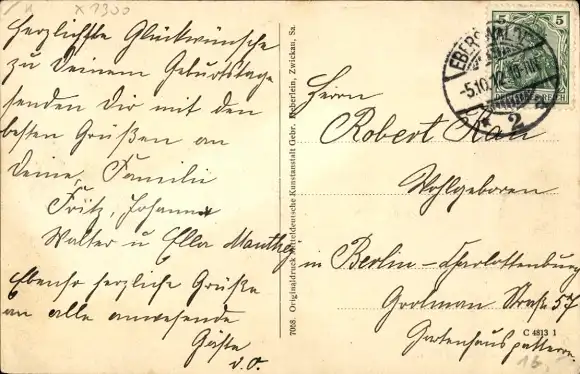 x 1300
Herzlichste Glückwünsche
zu Deinem Geburtstage
senden Dir mit den
besten Grüßen an
Deine Familie
Fritz, Johanna
Walter u Ella Manthey
Ebenso herzliche Grüße
an alle anwesende
Gäste
d. O.
7088. Originaldruck Mitteldeutsche Kunstanstalt Gebr. Heberlein, Zwickau, Sa.
5 5
EBERSWALDE
-5.10.12. 10-11V.
2
Herrn
Robert Rau
Wohlgeboren
in Berlin-Charlottenburg
Grolman Straße 57
C 4813 1
Gartenhaus parterre.